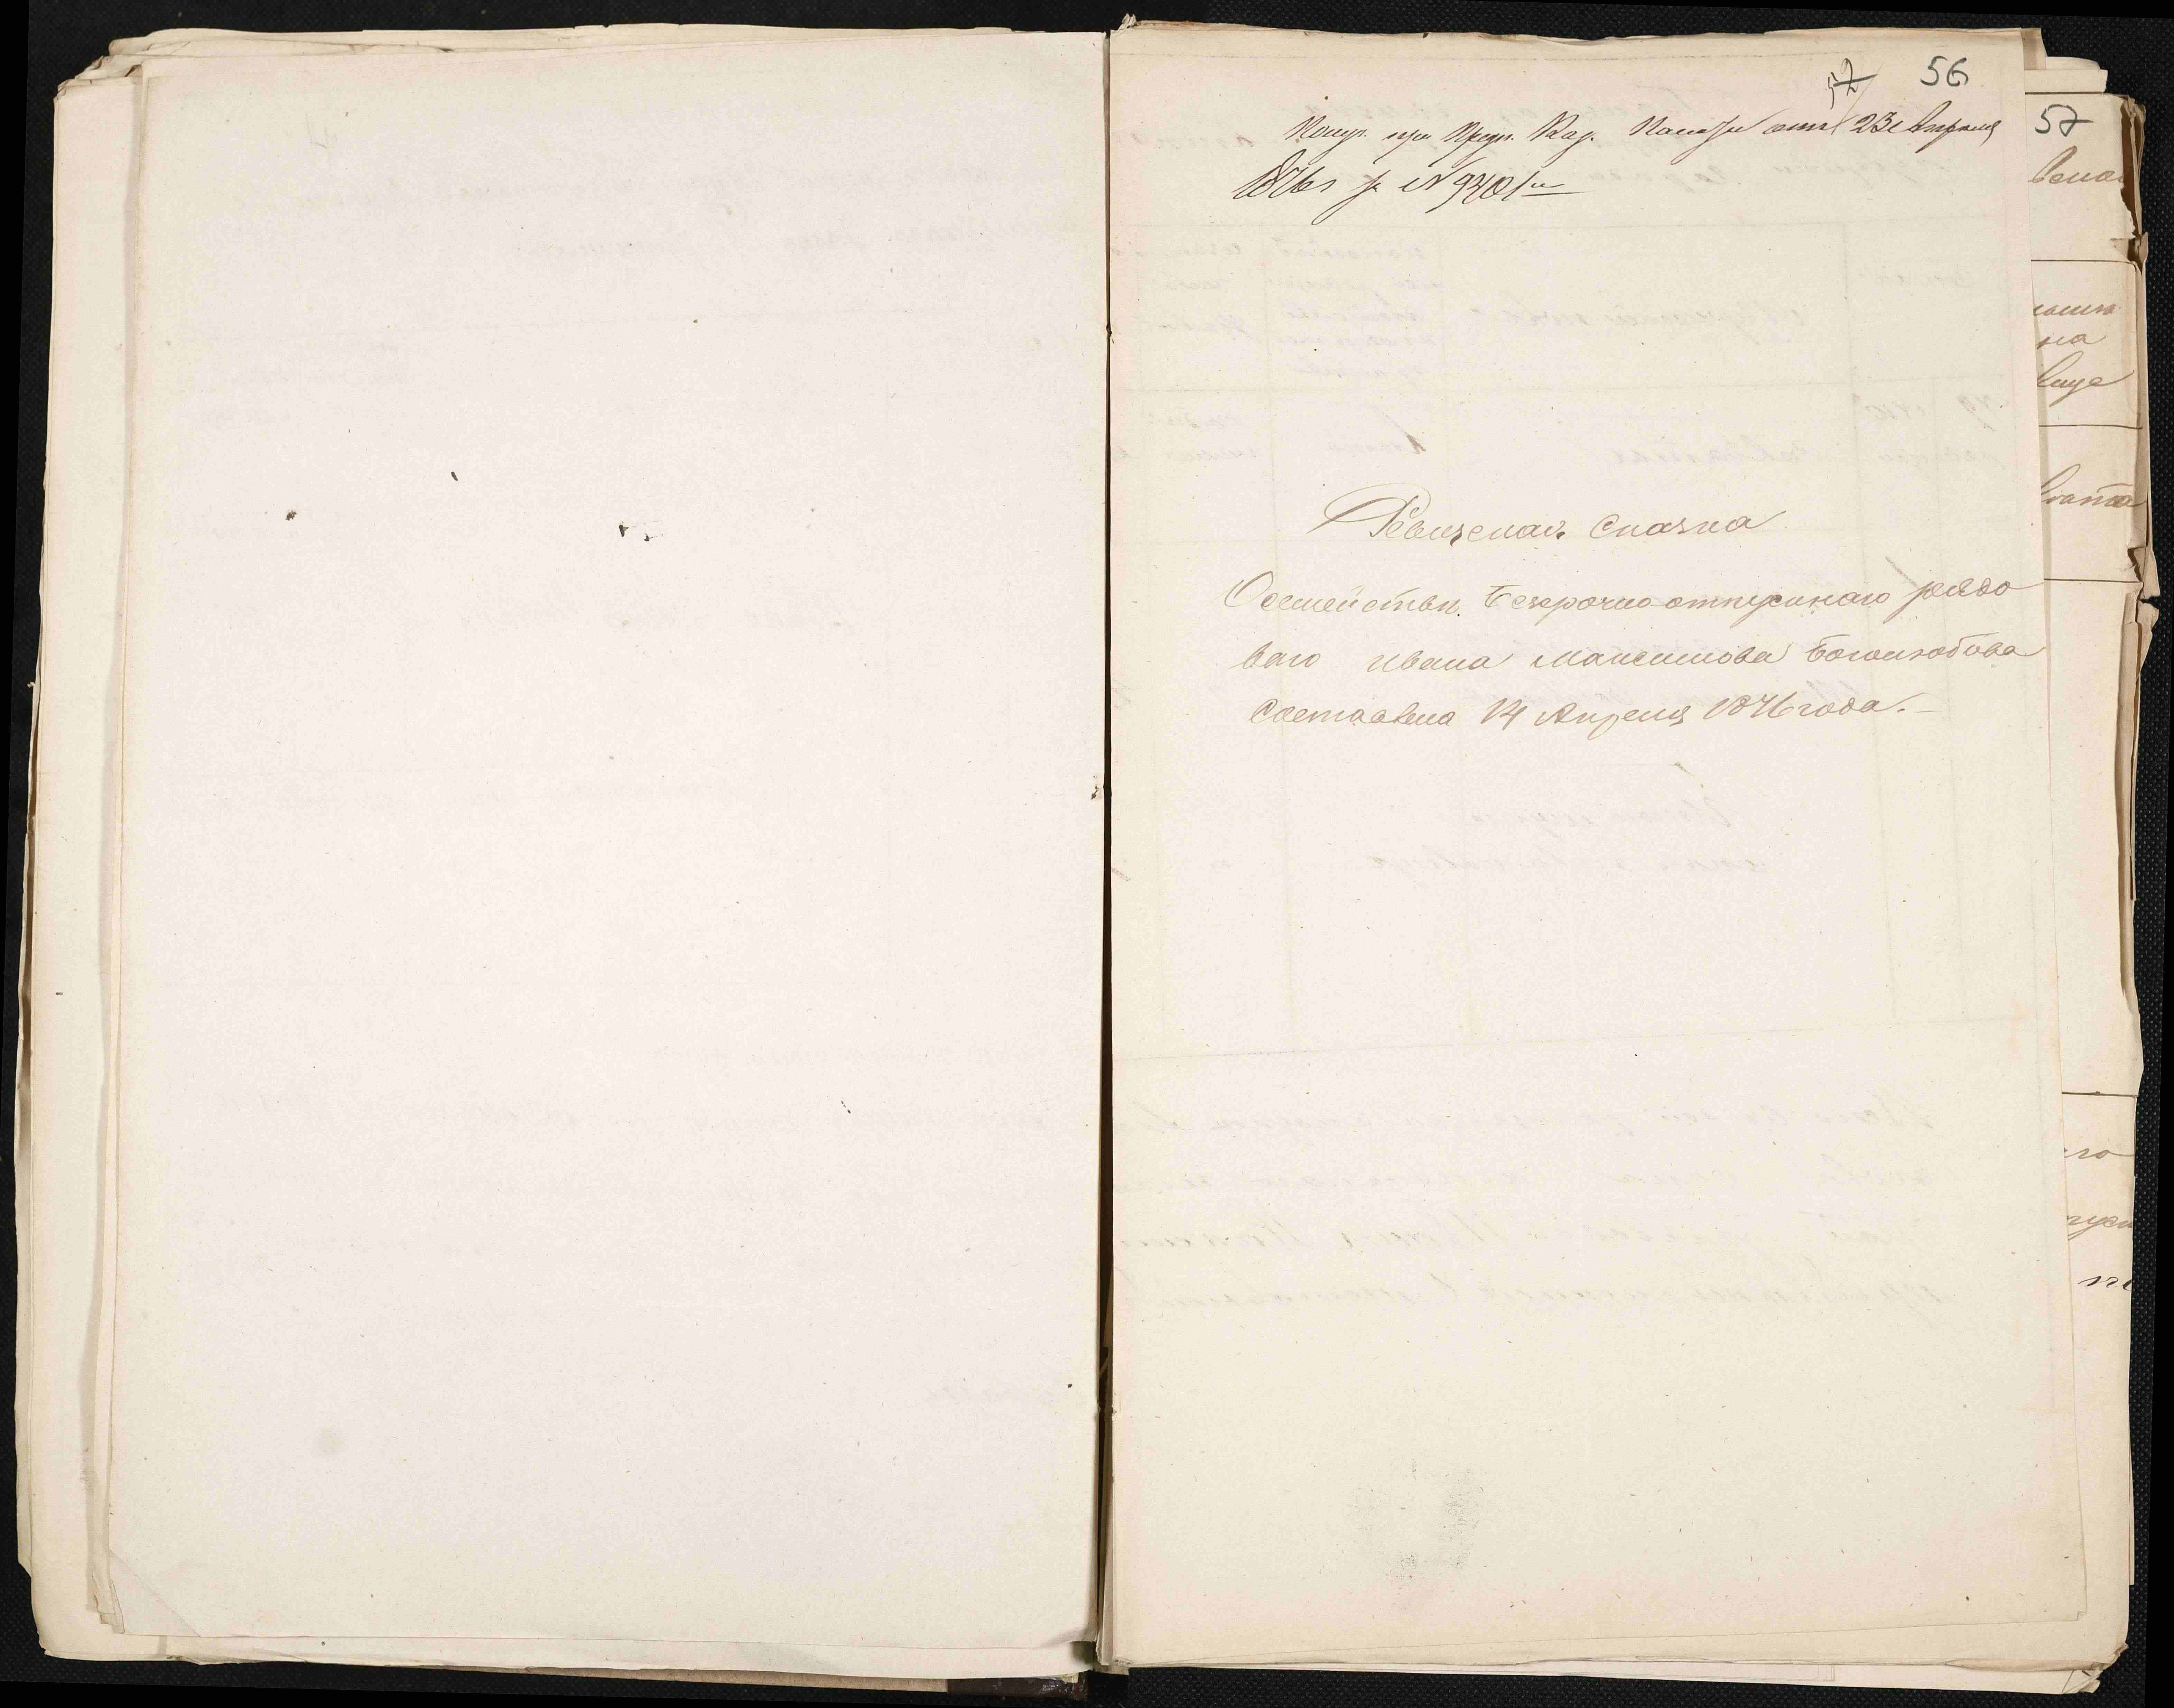 52 56
Получ. при Предп. Каз. Палаты отъ 23 Апреля
1876 г за № 9401
57
Ревизская Сказка
Осемействѣ Безсрочно отпускнаго рядо
ваго Ивана Максимова Боголюбова
Составлена 14 Апреля 1876 года. —